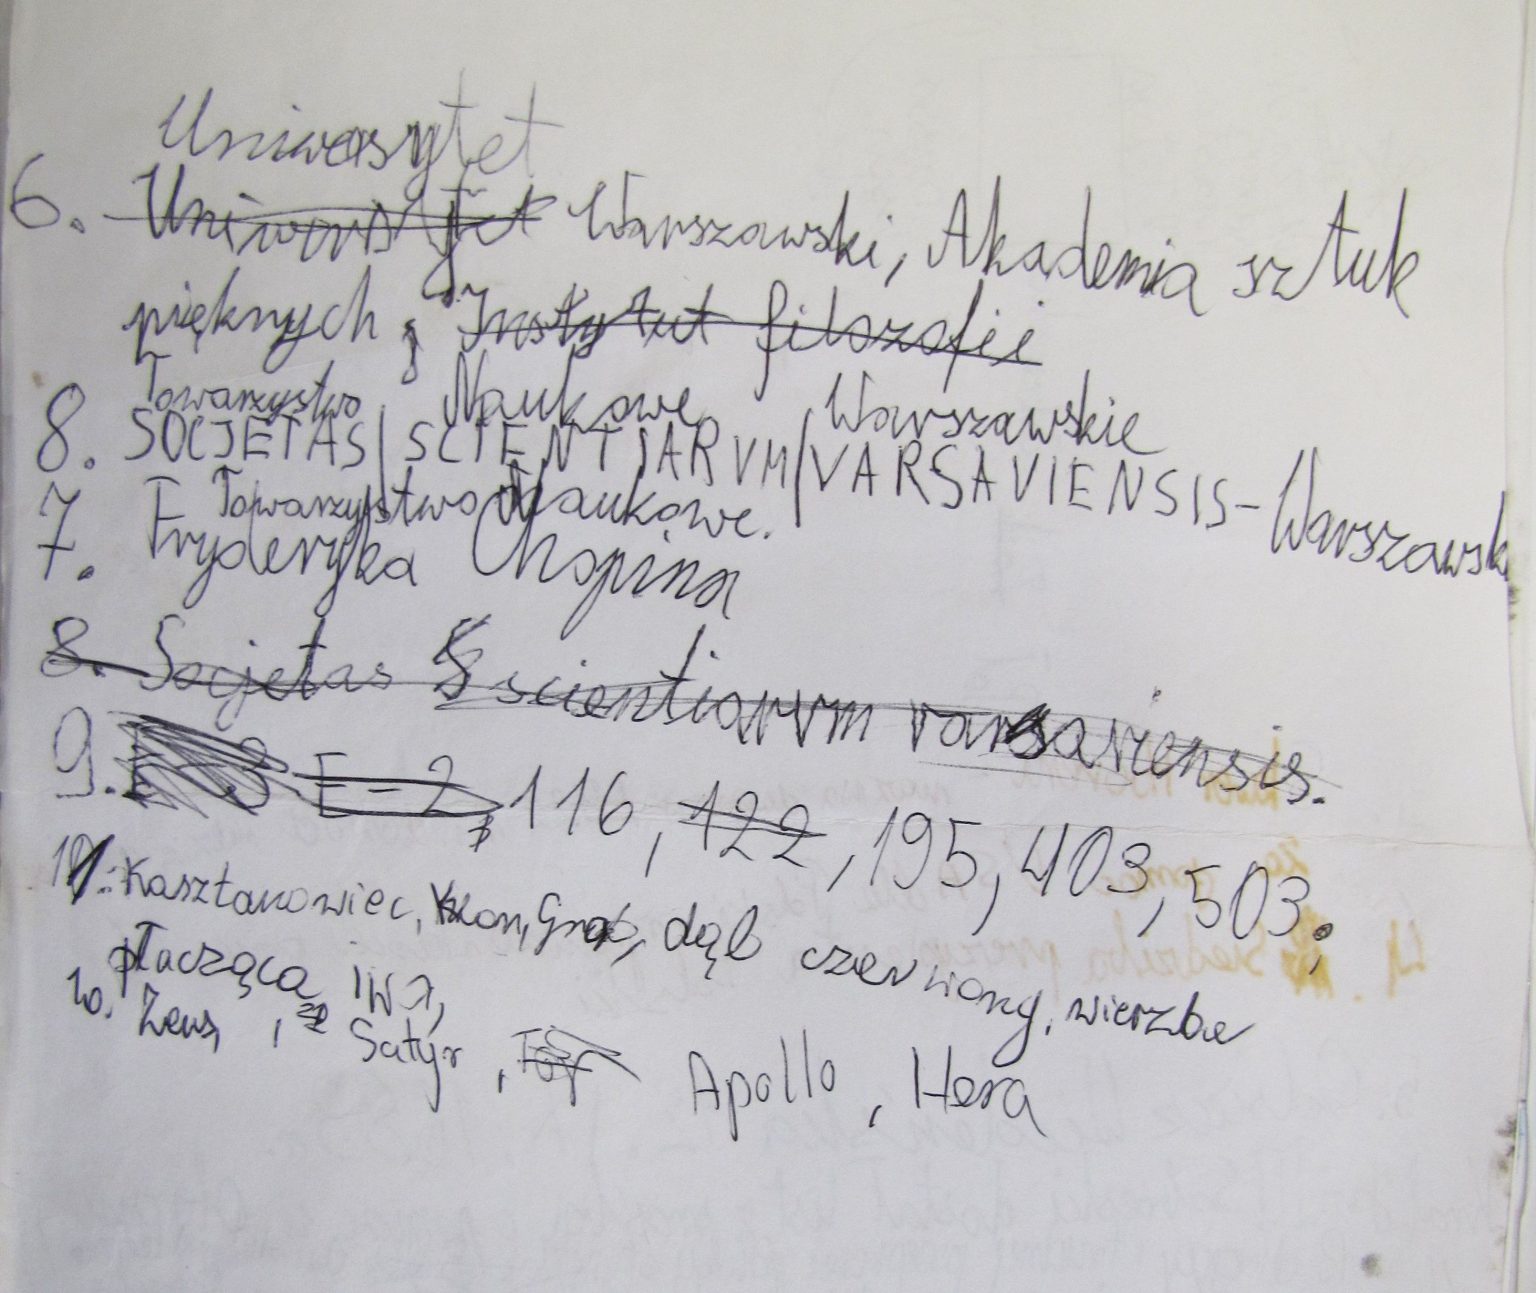 Uniwersytet
6. Uniwersytet Warszawski, Akademia sztuk
pięknych, Instytut filozofii
Towarzystwo Naukowe Warszawskie
8. SOCJETAS/SCIENTJARVM/VARSAVIENSIS-Warszawsk
Towarzystwo Naukowe.
7. Fryderyka Chopina
8. Socjetas scientiarvm varsaviensis.
9. E-2, 116, 122, 195, 403, 503,
10. Kasztanowiec, Klon, Grab, dąb czerwony, wierzba
płacząca, iwa,
10. Zeus, Satyr, Apollo, Hera